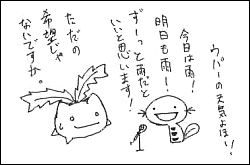 ウパーの天気よほー!
今日は雨!
明日も雨ー!
ずーっと雨だと
いいと思います!
ただの
希望じゃ
ないですか。